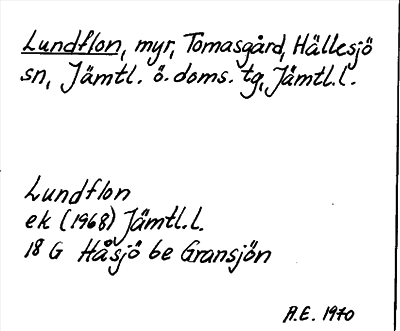 Lundflon, myr, Tomasgård, Hällesjö
sn, Jämtl. ö. doms. tg, Jämtl.l.
Lundflon
ek (1968) Jämtl.l.
18 G Håsjö be Gransjön
A.E. 1970